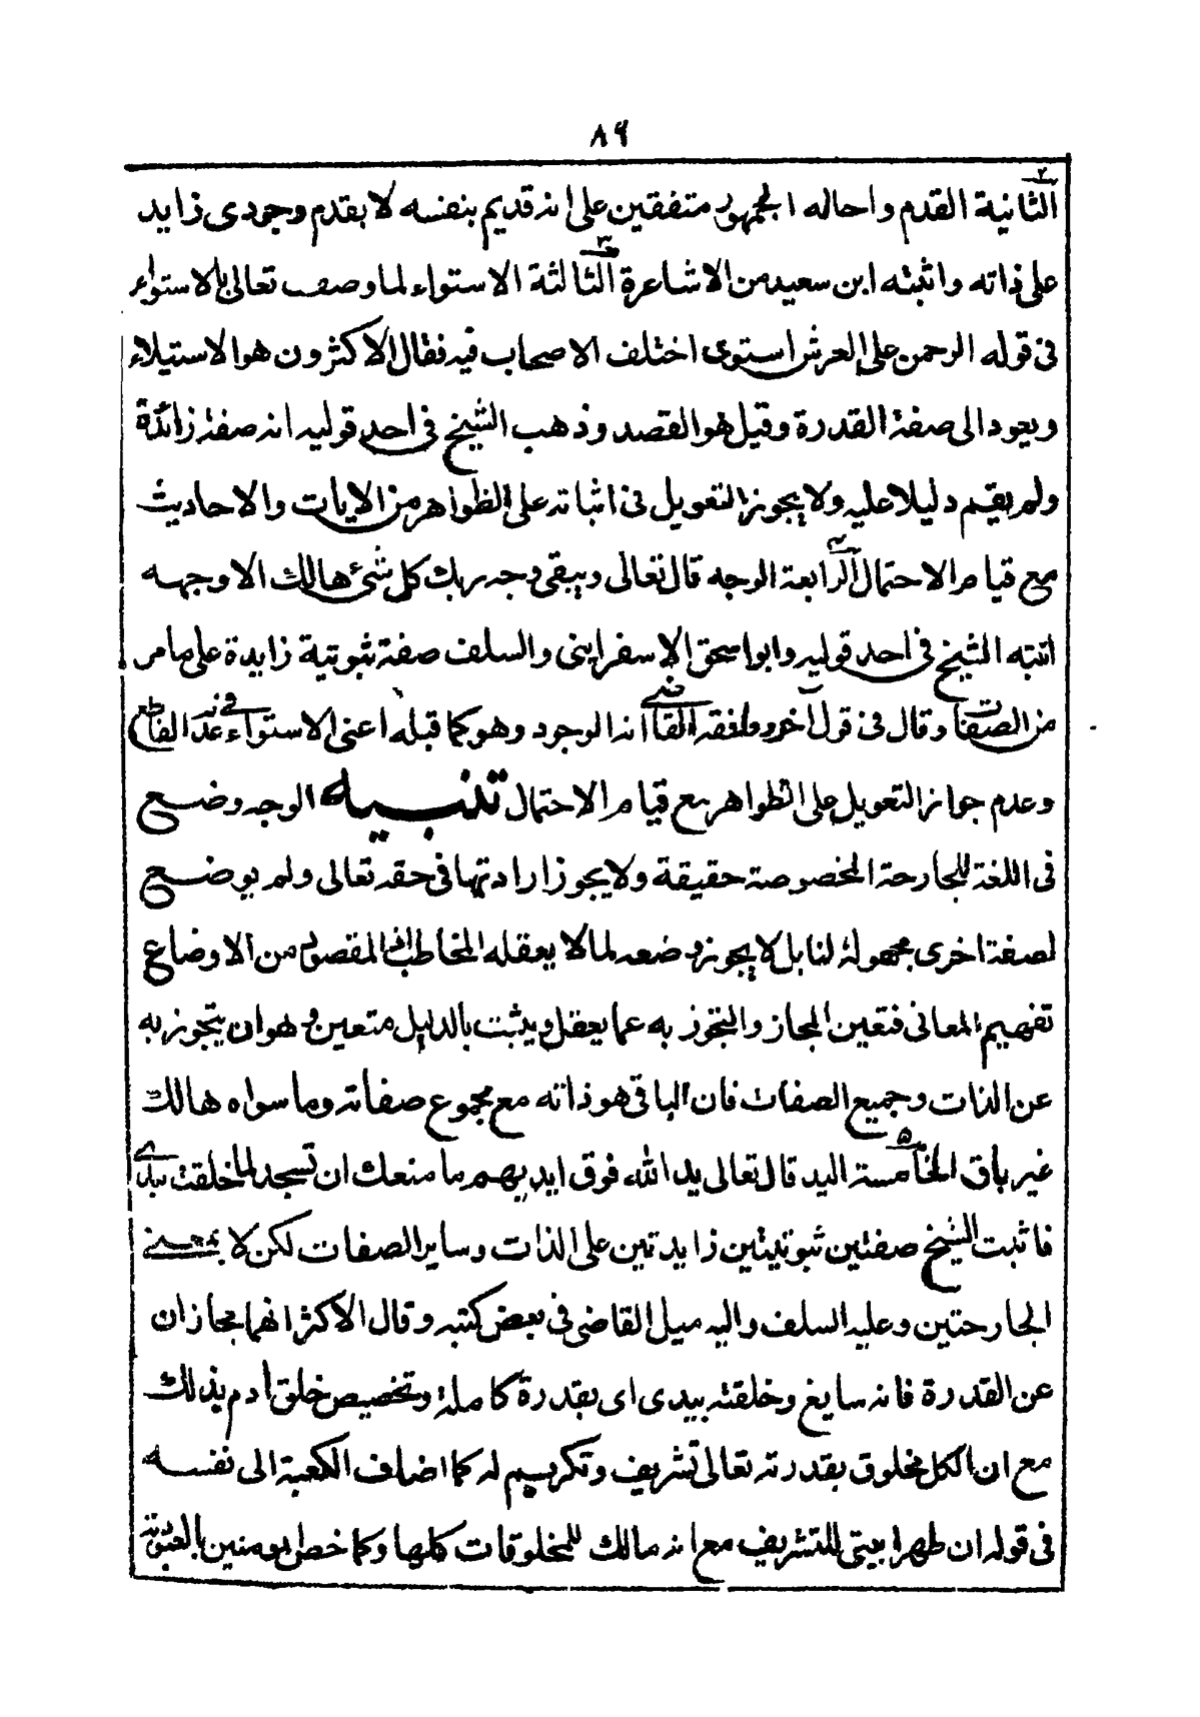 ٨٩
الثانية القدم واحاله الجمهور متفقين على انه قديم بنفسه لا بقدم وجودى زايد
على ذاته واثبته ابن سعيد من الاشاعرة الثالثة الاستواء لما وصف تعالى بالاستواء
فى قوله الرحمن على العرش استوى اختلف الاصحاب فيه فقال الاكثرون هو الاستيلاء
ويعود الى صفة القدرة وقيل هو القصد وذهب الشيخ فى احد قوليه انه صفة زائدة
ولم يقم دليلا عليه ولا يجوز التعويل فى اثباته على الظواهر من الايات والاحاديث
مع قيام الاحتمال الرابعة الوجه قال تعالى ويبقى وجه ربك كل شئ هالك الا وجهه
اثبته الشيخ فى احد قوليه وابو اسحق الاسفراينى والسلف صفة ثبوتية زايدة على ما مر
من الصفات وقال فى قول آخر ووافقه القاضى انه الوجود وهو كما قبله اعنى الاستواء فى عدم القاطع
وعدم جواز التعويل على الظواهر مع قيام الاحتمال تنبيه الوجه وضع
فى اللغة للجارحة المخصوصة حقيقة ولا يجوز ارادتها فى حقه تعالى ولم يوضع
لصفة اخرى مجهولة لنا بل لا يجوز وضعه لما لا يعقله المخاطب اذ المقصود من الاوضاع
تفهيم المعانى فتعين المجاز والتجوز به عما يعقل ويثبت بالدليل متعين وهو ان يتجوز به
عن الذات وجميع الصفات فان الباقى هو ذاته مع مجموع صفاته وما سواه هالك
غير باق الخامسة اليد قال تعالى يد الله فوق ايديهم ما منعك ان تسجد لما خلقت بيدى
فاثبت الشيخ صفتين ثبوتيتين زايدتين على الذات وساير الصفات لكن لا بمعنى
الجارحتين وعليه السلف واليه ميل القاضى فى بعض كتبه وقال الاكثر انهما مجازان
عن القدرة فانه سايغ وخلقته بيدى اى بقدرة كاملة وتخصيص خلق ادم بذلك
مع ان الكل مخلوق بقدرته تعالى تشريف وتكريم له كما اضاف الكعبة الى نفسه
فى قوله ان طهرا بيتى للتشريف مع انه مالك للمخلوقات كلها وكما خص المومنين بالعبودية